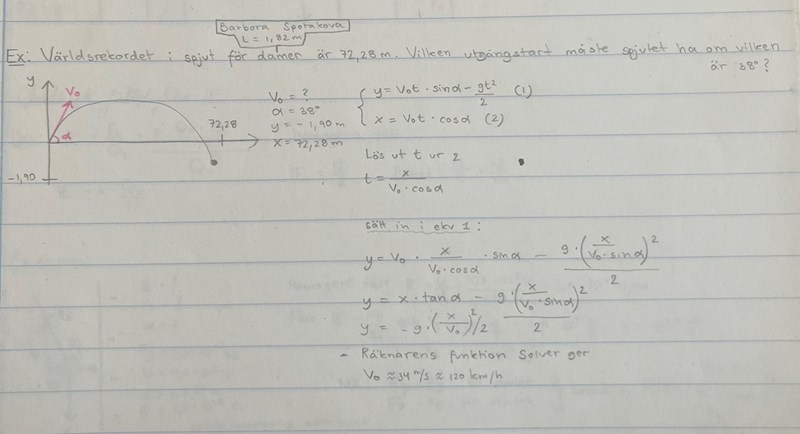 Barbora Spotakova
L = 1,82 m
Ex: Världsrekordet i spjut för damer är 72,28 m. Vilken utgångstart måste spjutet ha om vilken
är 38°?
y
V₀
α
72,28
-1,90
V₀ = ?
α = 38°
y = - 1,90 m
x = 72,28 m
{ y = V₀t · sinα - gt²/2 (1)
x = V₀t · cosα (2)
Lös ut t ur 2
t = x/(V₀ · cosα)
Sätt in i ekv 1:
y = V₀ · x/(V₀ · cosα) · sinα - g · (x/(V₀ · sinα))²/2
y = x · tanα - g · (x/(V₀ · sinα))²/2
y = - g · (x/V₀)²/2
- Räknarens funktion Solver ger
V₀ ≈ 34 m/s ≈ 120 km/h